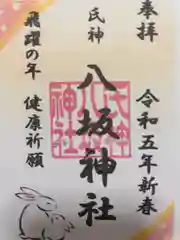 奉拝
令和五年新春
氏神
八坂神社
飛躍の年
健康祈願
氏神
八坂
神社